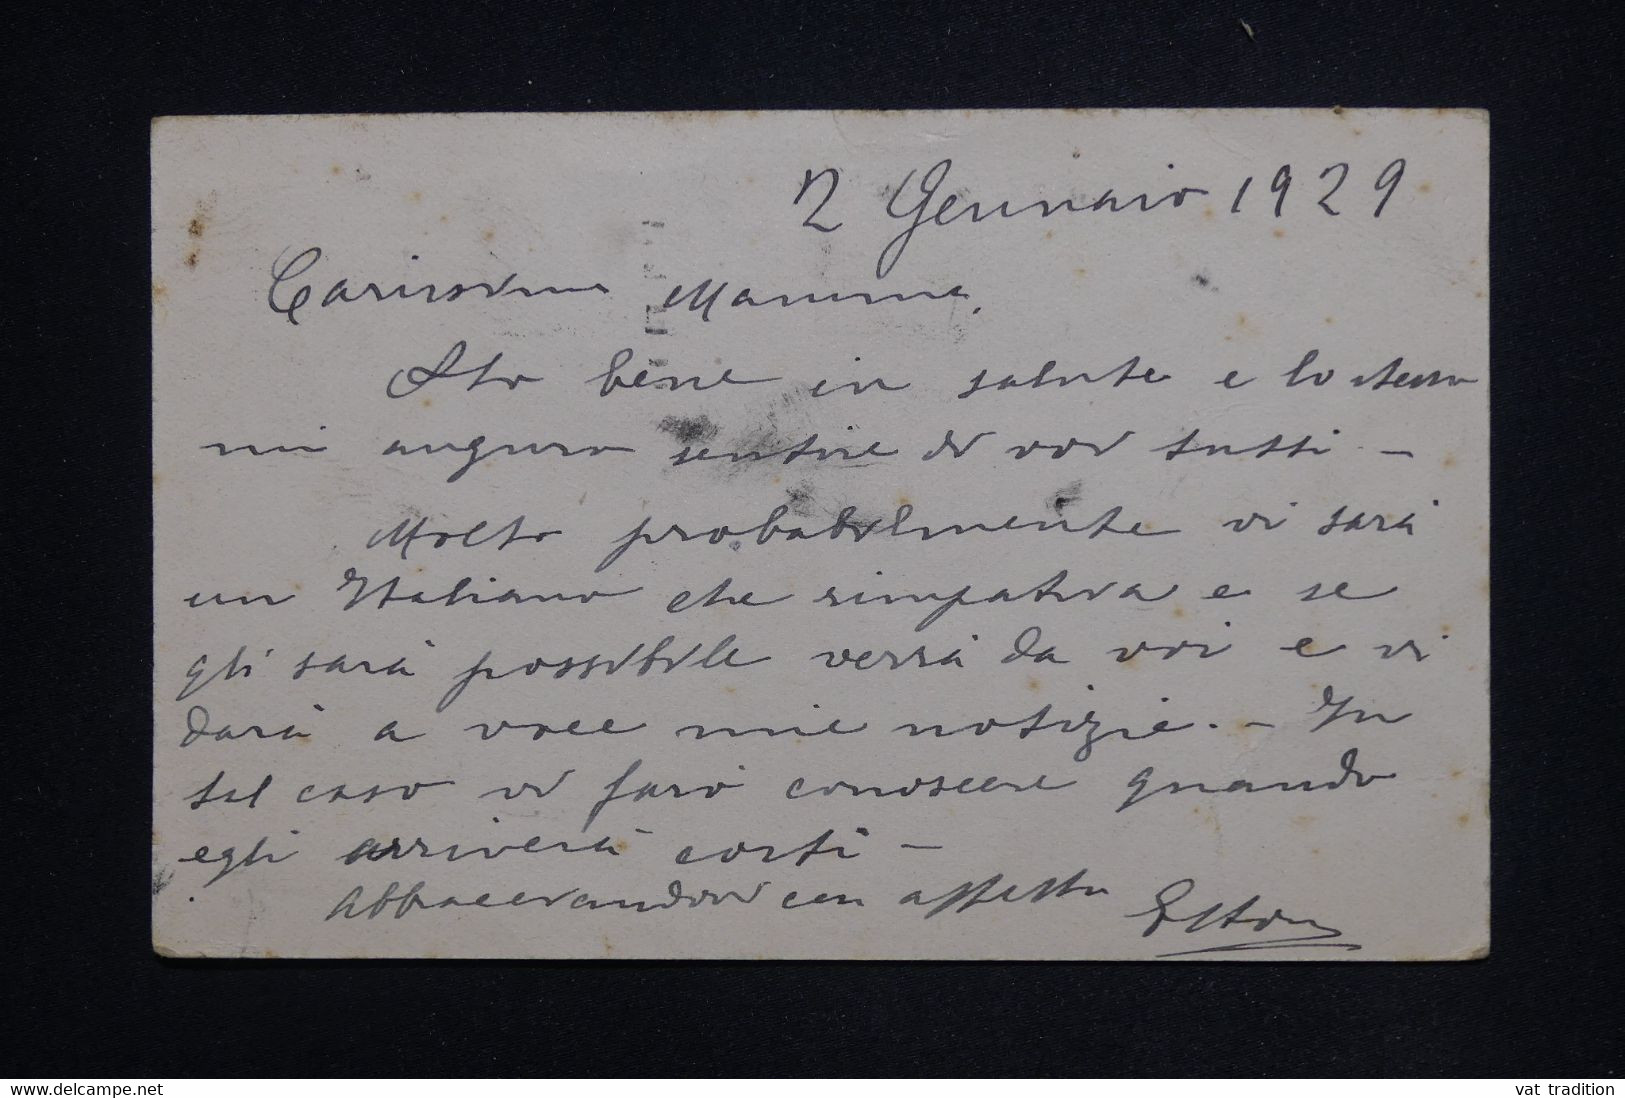 2 Gennaio 1929
Carissima Mamma,
Sto bene in salute e lo stesso
mi auguro sentire di voi tutti -
Molto probabilmente vi sarà
un Italiano che rimpatria e se
gli sarà possibile verrà da voi e vi
darà a voce mie notizie. - In
tal caso vi farò conoscere quando
egli arriverà costì -
Abbracciandovi con affetto
www.delcampe.net
vat_tradition